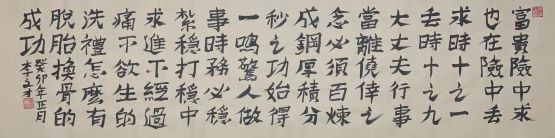 富貴險中求
也在險中丟
求時十之一
丟時十之九
大丈夫行事
當離僥倖之
念必須百煉
成鋼厚積分
秒之功始得
一鳴驚人做
事時務必穩
紮穩打穩中
求進不經過
痛不欲生的
洗禮怎麽有
脫胎換骨的
成功
癸卯年正月
李